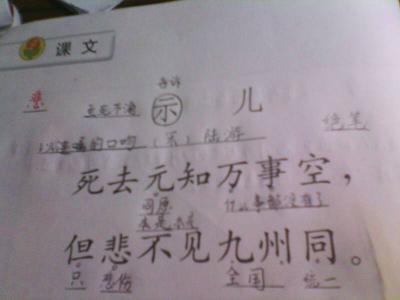 课文
告诉
悲 示 儿 绝笔
遗嘱的口吻 (宋) 陆游
死去元知万事空,
同原 什么事都没有了
本是 本来
但悲不见九州同。
只 悲伤 全国 统一